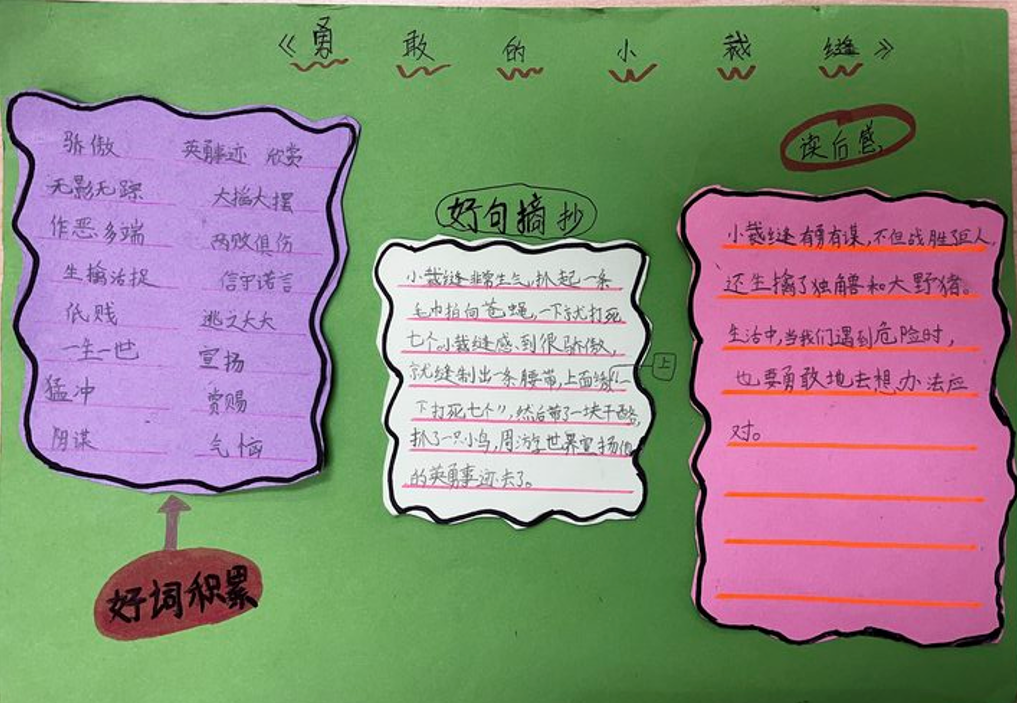 《勇敢的小裁缝》
骄傲 英勇事迹 欣赏
无影无踪 大摇大摆
作恶多端 两败俱伤
生擒活捉 信守诺言
低贱 逃之夭夭
一生一世 宣扬
猛冲 赏赐
阴谋 气恼
好词积累
好句摘抄
小裁缝非常生气,抓起一条
毛巾拍向苍蝇,一下就打死
七个。小裁缝感到很骄傲,
就缝制出一条腰带,上面绣“一
上
下打死七个”,然后带了一块干酪,
抓了一只小鸟,周游世界宣扬他
的英勇事迹去了。
读后感
小裁缝有勇有谋,不但战胜巨人,
还生擒了独角兽和大野猪。
生活中,当我们遇到危险时,
也要勇敢地去想办法应
对。